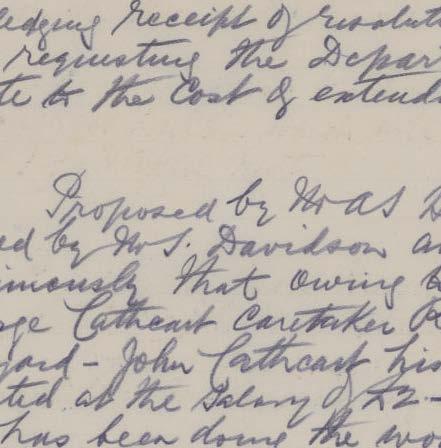 ledging receipt of resolut
requesting the Depar
te to the Cost of extend
Proposed by Mr A S D
ed by Mr S. Davidson a
imously that owing
ge Cathcart Caretaker R
yard - John Cathcart his
ted at the Salary of £2-
has been doing the wo